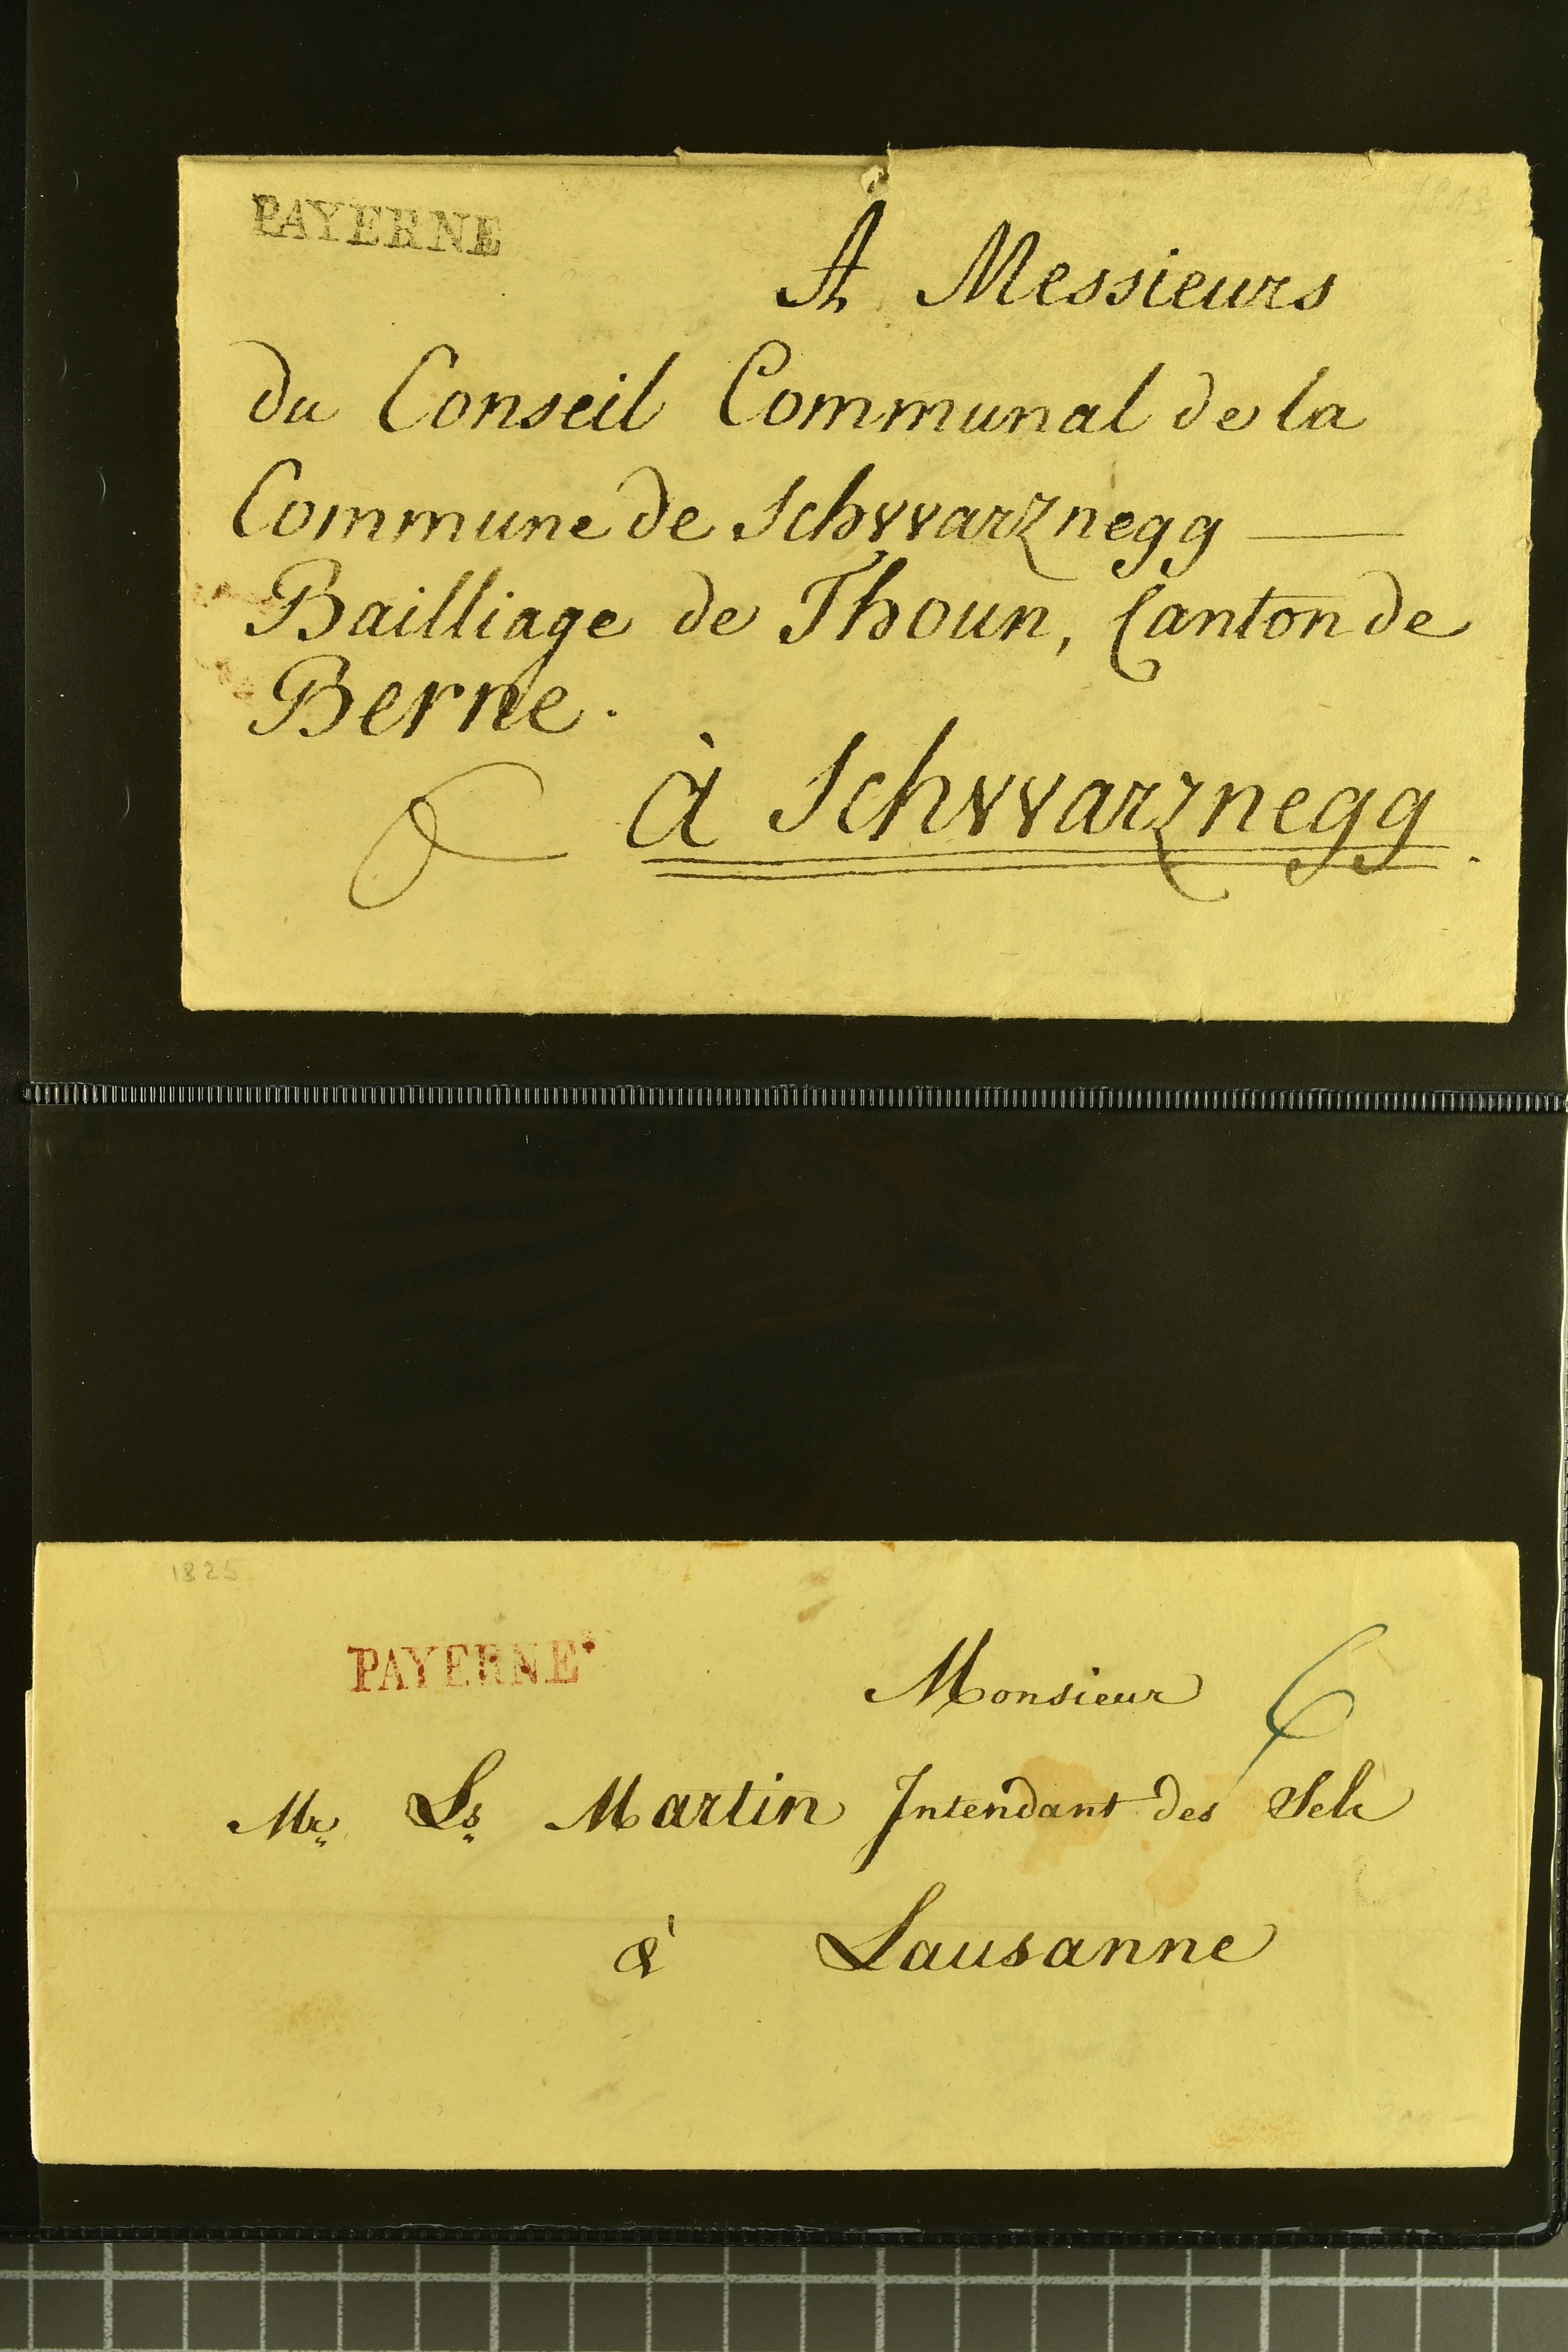 PAYERNE
A Messieurs
du Conseil Communal de la
Commune de Schwarznegg
Bailliage de Thoun, Canton de
Berne.
à Schwarznegg.
1825
PAYERNE
Monsieur 6
Mr Ls Martin Intendant des Sels
à Lausanne